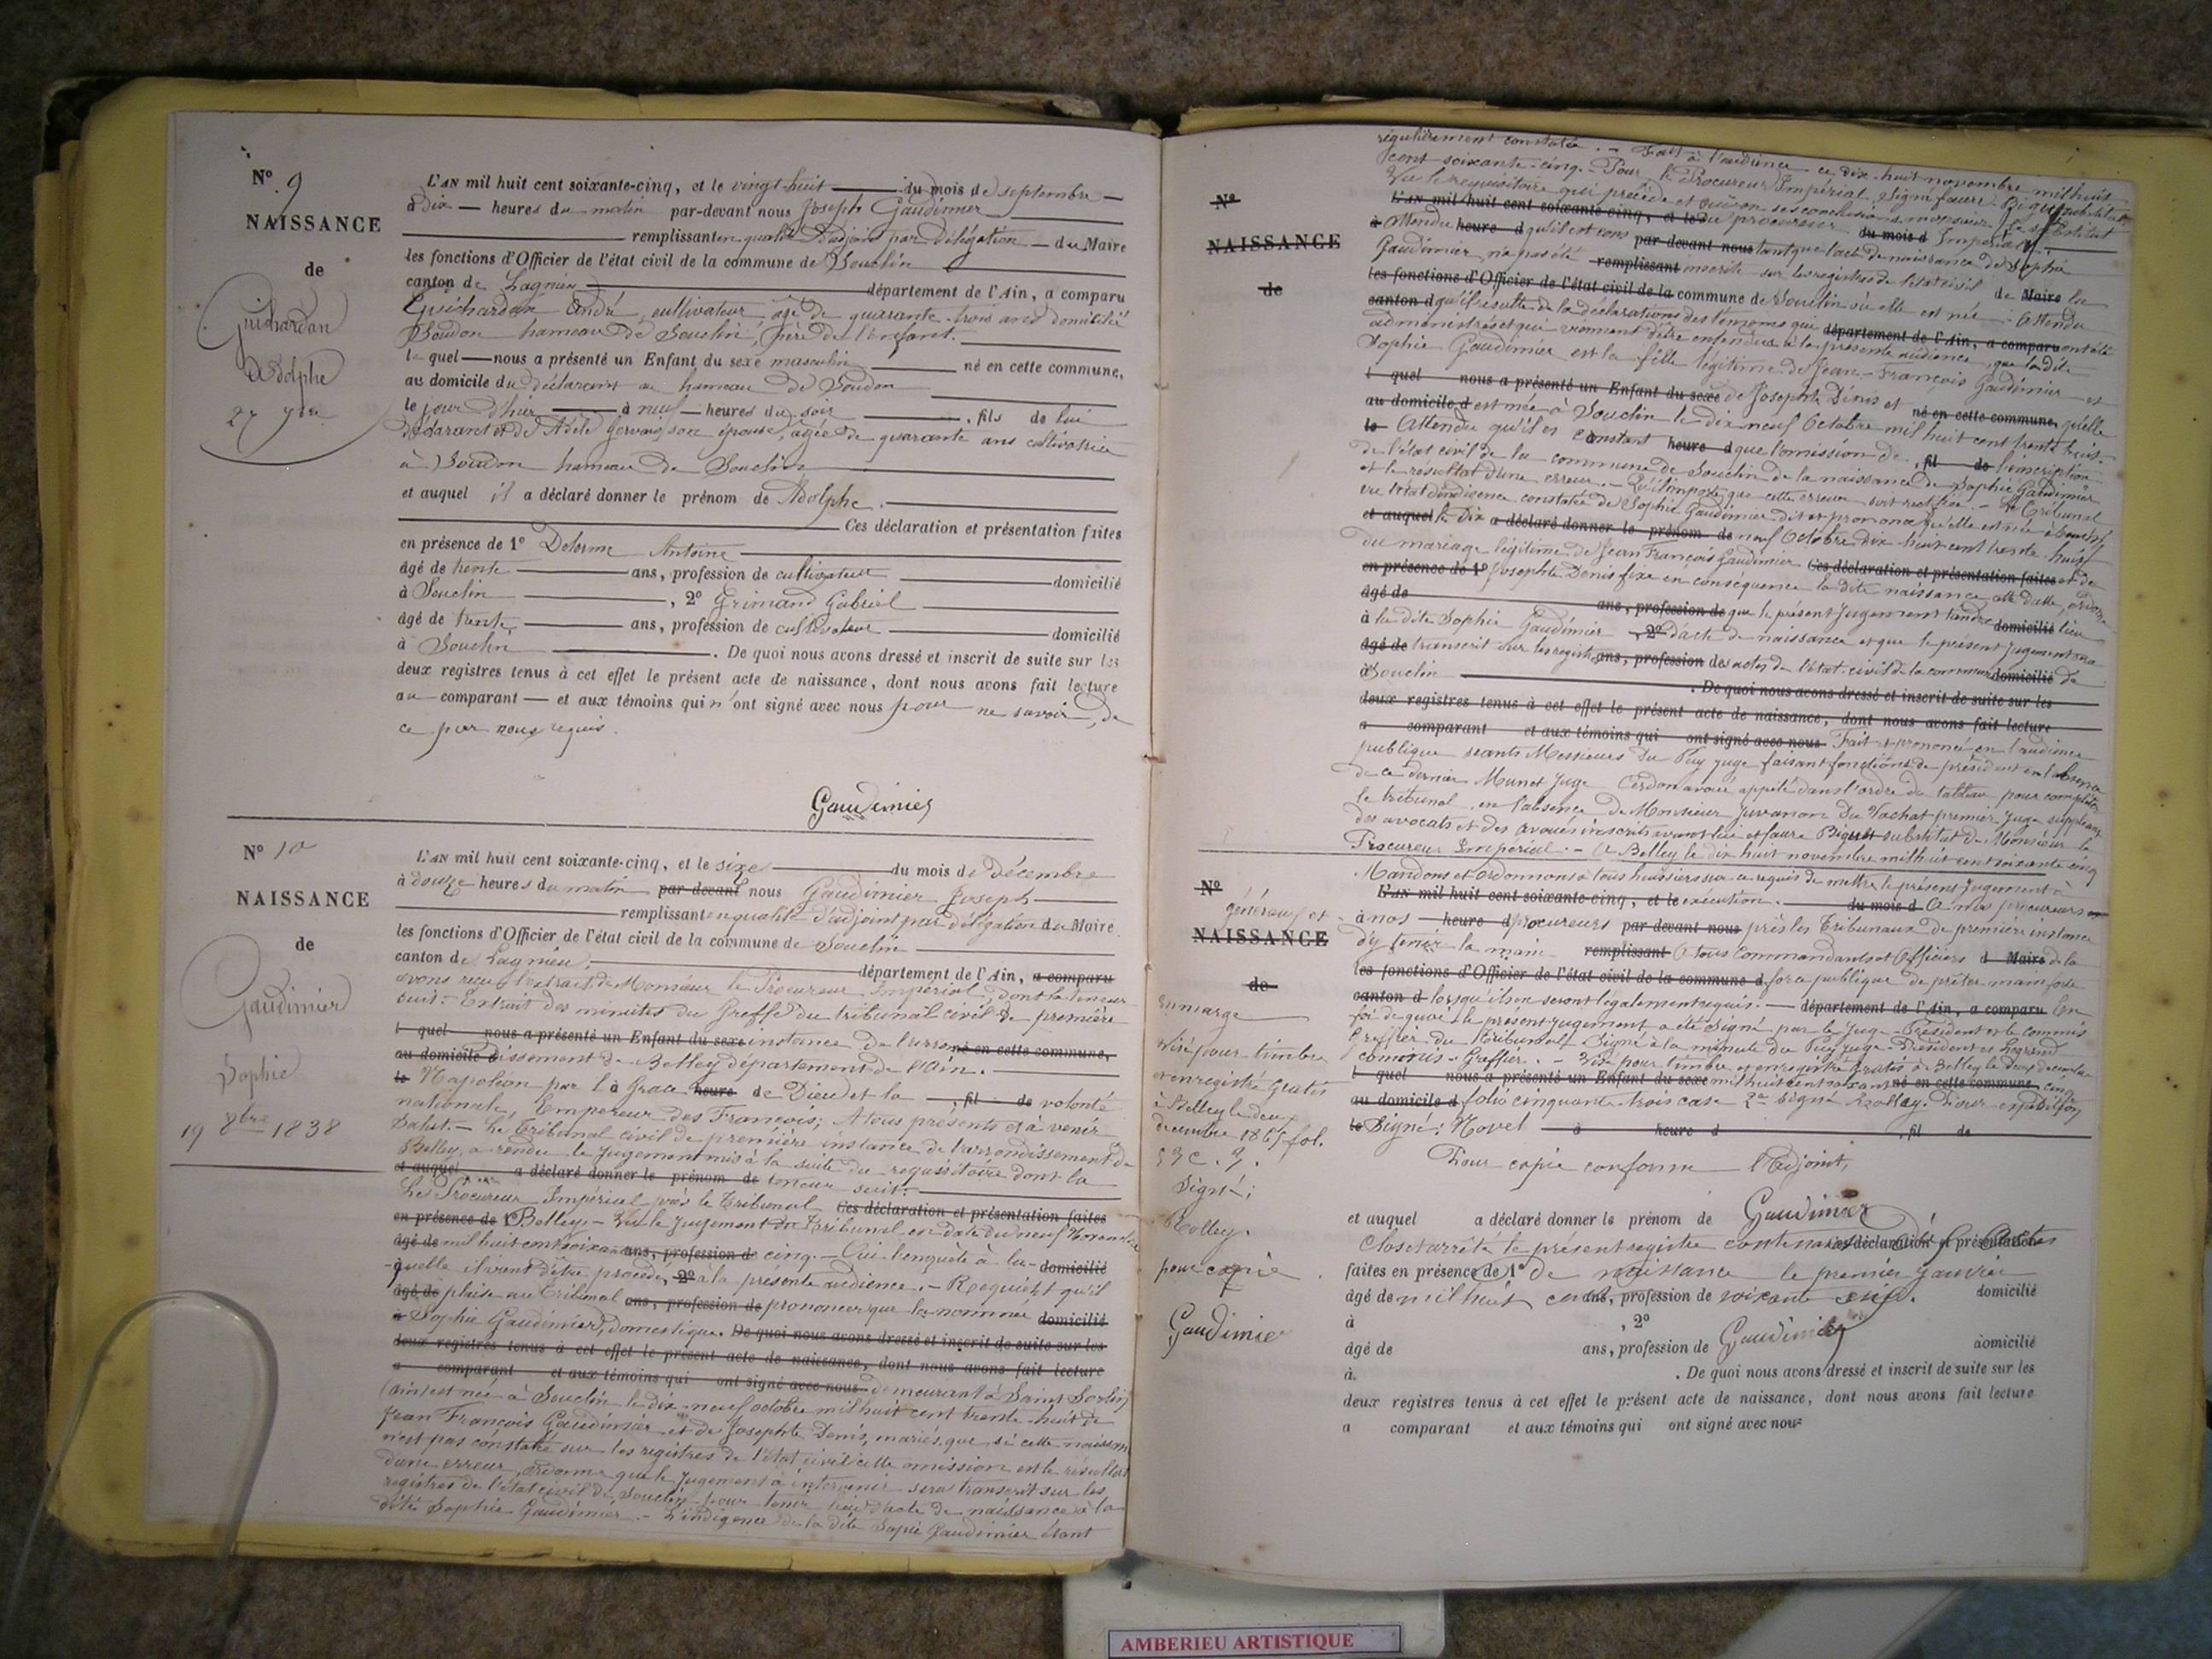 N° 9
NAISSANCE
de
Guichardan
Adolphe
27 7bre
L'AN mil huit cent soixante-cinq, et le vingt-huit du mois de septembre
à dix heures du matin par-devant nous Joseph Gaudimier
remplissant en qualité d'adjoint par délégation du Maire
les fonctions d'Officier de l'état civil de la commune de Souclin
canton de Lagnieu département de l'Ain, a comparu
Guichardan André, cultivateur âgé de quarante trois ans domicilié
Soudon hameau de Souclin, père de l'enfant.
le quel nous a présenté un Enfant du sexe masculin né en cette commune,
au domicile du déclarant au hameau de Soudon
le jour d'hier à neuf heures du soir, fils de lui
déclarant et de Adèle Gervais son épouse, âgée de quarante ans cultivatrice
à Soudon hameau de Souclin
et auquel il a déclaré donner le prénom de Adolphe.
Ces déclaration et présentation faites
en présence de 1° Delorme Antoine
âgé de trente ans, profession de cultivateur domicilié
à Souclin, 2° Grimand Gabriel
âgé de trente ans, profession de cultivateur domicilié
à Souclin. De quoi nous avons dressé et inscrit de suite sur les
deux registres tenus à cet effet le présent acte de naissance, dont nous avons fait lecture
au comparant et aux témoins qui n'ont signé avec nous pour ne savoir, de
ce par nous requis.
Gaudimier
N° 10
NAISSANCE
de
Gaudimier
Sophie
19 8bre 1838
L'AN mil huit cent soixante-cinq, et le sixe du mois de Décembre
à douze heures du matin par devant nous Gaudimier Joseph
remplissant en qualité d'adjoint par délégation du Maire
les fonctions d'Officier de l'état civil de la commune de Souclin
canton de Lagnieu, département de l'Ain, a comparu
avons reçu l'extrait de Monsieur le Procureur Impérial, dont la teneur
suit: Extrait des minutes du Greffe du tribunal civil de première
l quel nous a présenté un Enfant du sexe instance de l'arron né en cette commune,
au domicile d dissement de Belley département de l'Ain.
le Napoléon par la Grace heure de Dieu et la , fil de volonté
nationale, Empereur des Français; A tous présents et à venir
Salut. - Le Tribunal civil de première instance de l'arrondissement de
Belley, a rendu le jugement mis à la suite du requisitoire dont la
et auquel a déclaré donner le prénom de teneur suit:
Le Procureur Impérial près le Tribunal Ces déclaration et présentation faites
en présence de 1° Belley. - Vu le jugement du Tribunal en date du neuf Novembre
âgé de mil huit cent soixante ans, profession de cinq. - Oui l'enquète à la- domicilié
-quelle il vient d'être procédé, 2° à la présente audience. - Requiert qu'il
âgé de plaise au Tribunal ans, profession de prononcer que la nommée domicilié
à Sophie Gaudimier, domestique. De quoi nous avons dressé et inscrit de suite sur les
deux registres tenus à cet effet le présent acte de naissance, dont nous avons fait lecture
a comparant et aux témoins qui ont signé avec nous demeurant à Saint Sorlin
(Ain) est née à Souclin le dix-neuf octobre mil huit cent trente-huit de
Jean François Gaudimier et de Josephte Denis, mariés, que si cette naissance
n'est pas constatée sur les registres de l'état civil cette omission est le résultat
d'une erreur, ordonne que le jugement à intervenir sera transcrit sur les
registres de l'état civil de Souclin pour tenir lieu d'acte de naissance à la
dite Sophie Gaudimier. - L'indigence de la dite Sophie Gaudimier étant
N°
NAISSANCE
de
régulièrement constatée. - Fait à l'audience ce dix-huit novembre mil huit
cent soixante-cinq. - Pour le Procureur Impérial, signé faure Biguet substitut
Vu le requisitoire qui précède et oui en ses conclusions monsieur le substitut
L'AN mil huit cent soixante-cinq, et le du procureur du mois d Impérial
à Attendu heure d qu'il est cons par-devant nous tant que l'acte de naissance de Sophie
Gaudimier n'a pas été remplissant inscrite sur les registres de l'état civil de Maire la
les fonctions d'Officier de l'état civil de la commune de Souclin où elle est née - Attendu
canton d qu'il résulte de la déclarations des témoins qui département de l'Ain, a comparu ont été
administrés et qui viennent d'être entendus à la présente audience, que la dite
Sophie Gaudimier est la fille légitime de Jean-François Gaudimier et
l quel nous a présenté un Enfant du sexe de Josephte Denis et né en cette commune, qu'elle
au domicile d est née à Souclin le dix neuf Octobre mil huit cent trente huit.
le Attendu qu'il es constant heure d que l'omission de , fil de l'inscription
de l'état civil de la commune de Souclin de la naissance de Sophie Gaudimier
et le résultat d'une erreur. - Qu'il importe que cette erreur soit rectifiée. - Le Tribunal
vu l'état d'indigence constatée de Sophie Gaudimier dit et prononce qu'elle est née à Souclin
et auquel le dix a déclaré donner le prénom de neuf Octobre dix huit cent trente huit
du mariage légitime de Jean François Gaudimier Ces déclaration et présentation faites et de
en présence de 1° Josephte Denis fixe en conséquence la dite naissance cette datte, ordonne
âgé de ans, profession de que le présent jugement tiendra domicilié lieu
à la dite Sophie Gaudimier 2° d'acte de naissance et que le présent jugement sera
âgé de transcrit sur les registres ans, profession des actes de l'état-civil de la commune domicilié de
à Souclin . De quoi nous avons dressé et inscrit de suite sur les
deux registres tenus à cet effet le présent acte de naissance, dont nous avons fait lecture
a comparant et aux témoins qui ont signé avec nous Fait et prononcé en l'audience
publique séants Messieurs Du Puy juge faisant fonctions de président en l'absence
de ce dernier Munet juge Cerdon avoué appelé dans l'ordre du tableau pour compléter
le tribunal, en l'absence de Monsieur Juvanon Du Vachat premier juge suppléant
des avocats et des avoués inscrits avant lui et faure Biguet substitut de Monsieur le
Procureur Impérial. - A Belley le dix huit novembre mil huit cent soixante cinq
Mandons et ordonnons à tous huissiers sur ce requis de mettre le présent jugement à
N°
généraux et
NAISSANCE
de
En marge
Visé pour timbre
et enregistré Gratis
à Belley le deux
décembre 1865 fol.
53 c. 2.
Signé:
Rolley.
pour copie
Gaudimier
L'AN mil huit cent soixante-cinq, et le exécution. du mois d A nos procureurs
à nos heure d procureurs par devant nous près les Tribunaux de première instance
d'y tenir la main remplissant A tous Commandants et Officiers d Maire de la
les fonctions d'Officier de l'état civil de la commune d force publique de prêter main forte
canton d lorsqu'ils en seront légalement requis. - département de l'Ain, a comparu En
foi de quoi le présent jugement a été signé par le Juge-Président et le commis
Greffier du Tribunal. Signé à la minute Du Puy juge-Président et Legrand
commis-Greffier. - Visé pour timbre et enregistré gratis à Belley le deux décembre
l quel nous a présenté un Enfant du sexe mil huit cent soixante né en cette commune, cinq
au domicile d folio cinquante-trois case 2e Signé Rolley. Pour expédition
le Signé: Novel à heure d , fil de
Pour copie conforme l'Adjoint,
et auquel a déclaré donner le prénom de Gaudimier
Clos et arrêté le présent registre contenant Ces déclaration et présentation
faites en présence de 1° de naissance le premier janvier
âgé de mil huit cent ans, profession de soixante six. domicilié
à , 2° Gaudimier
âgé de ans, profession de domicilié
à . De quoi nous avons dressé et inscrit de suite sur les
deux registres tenus à cet effet le présent acte de naissance, dont nous avons fait lecture
a comparant et aux témoins qui ont signé avec nous
AMBERIEU ARTISTIQUE